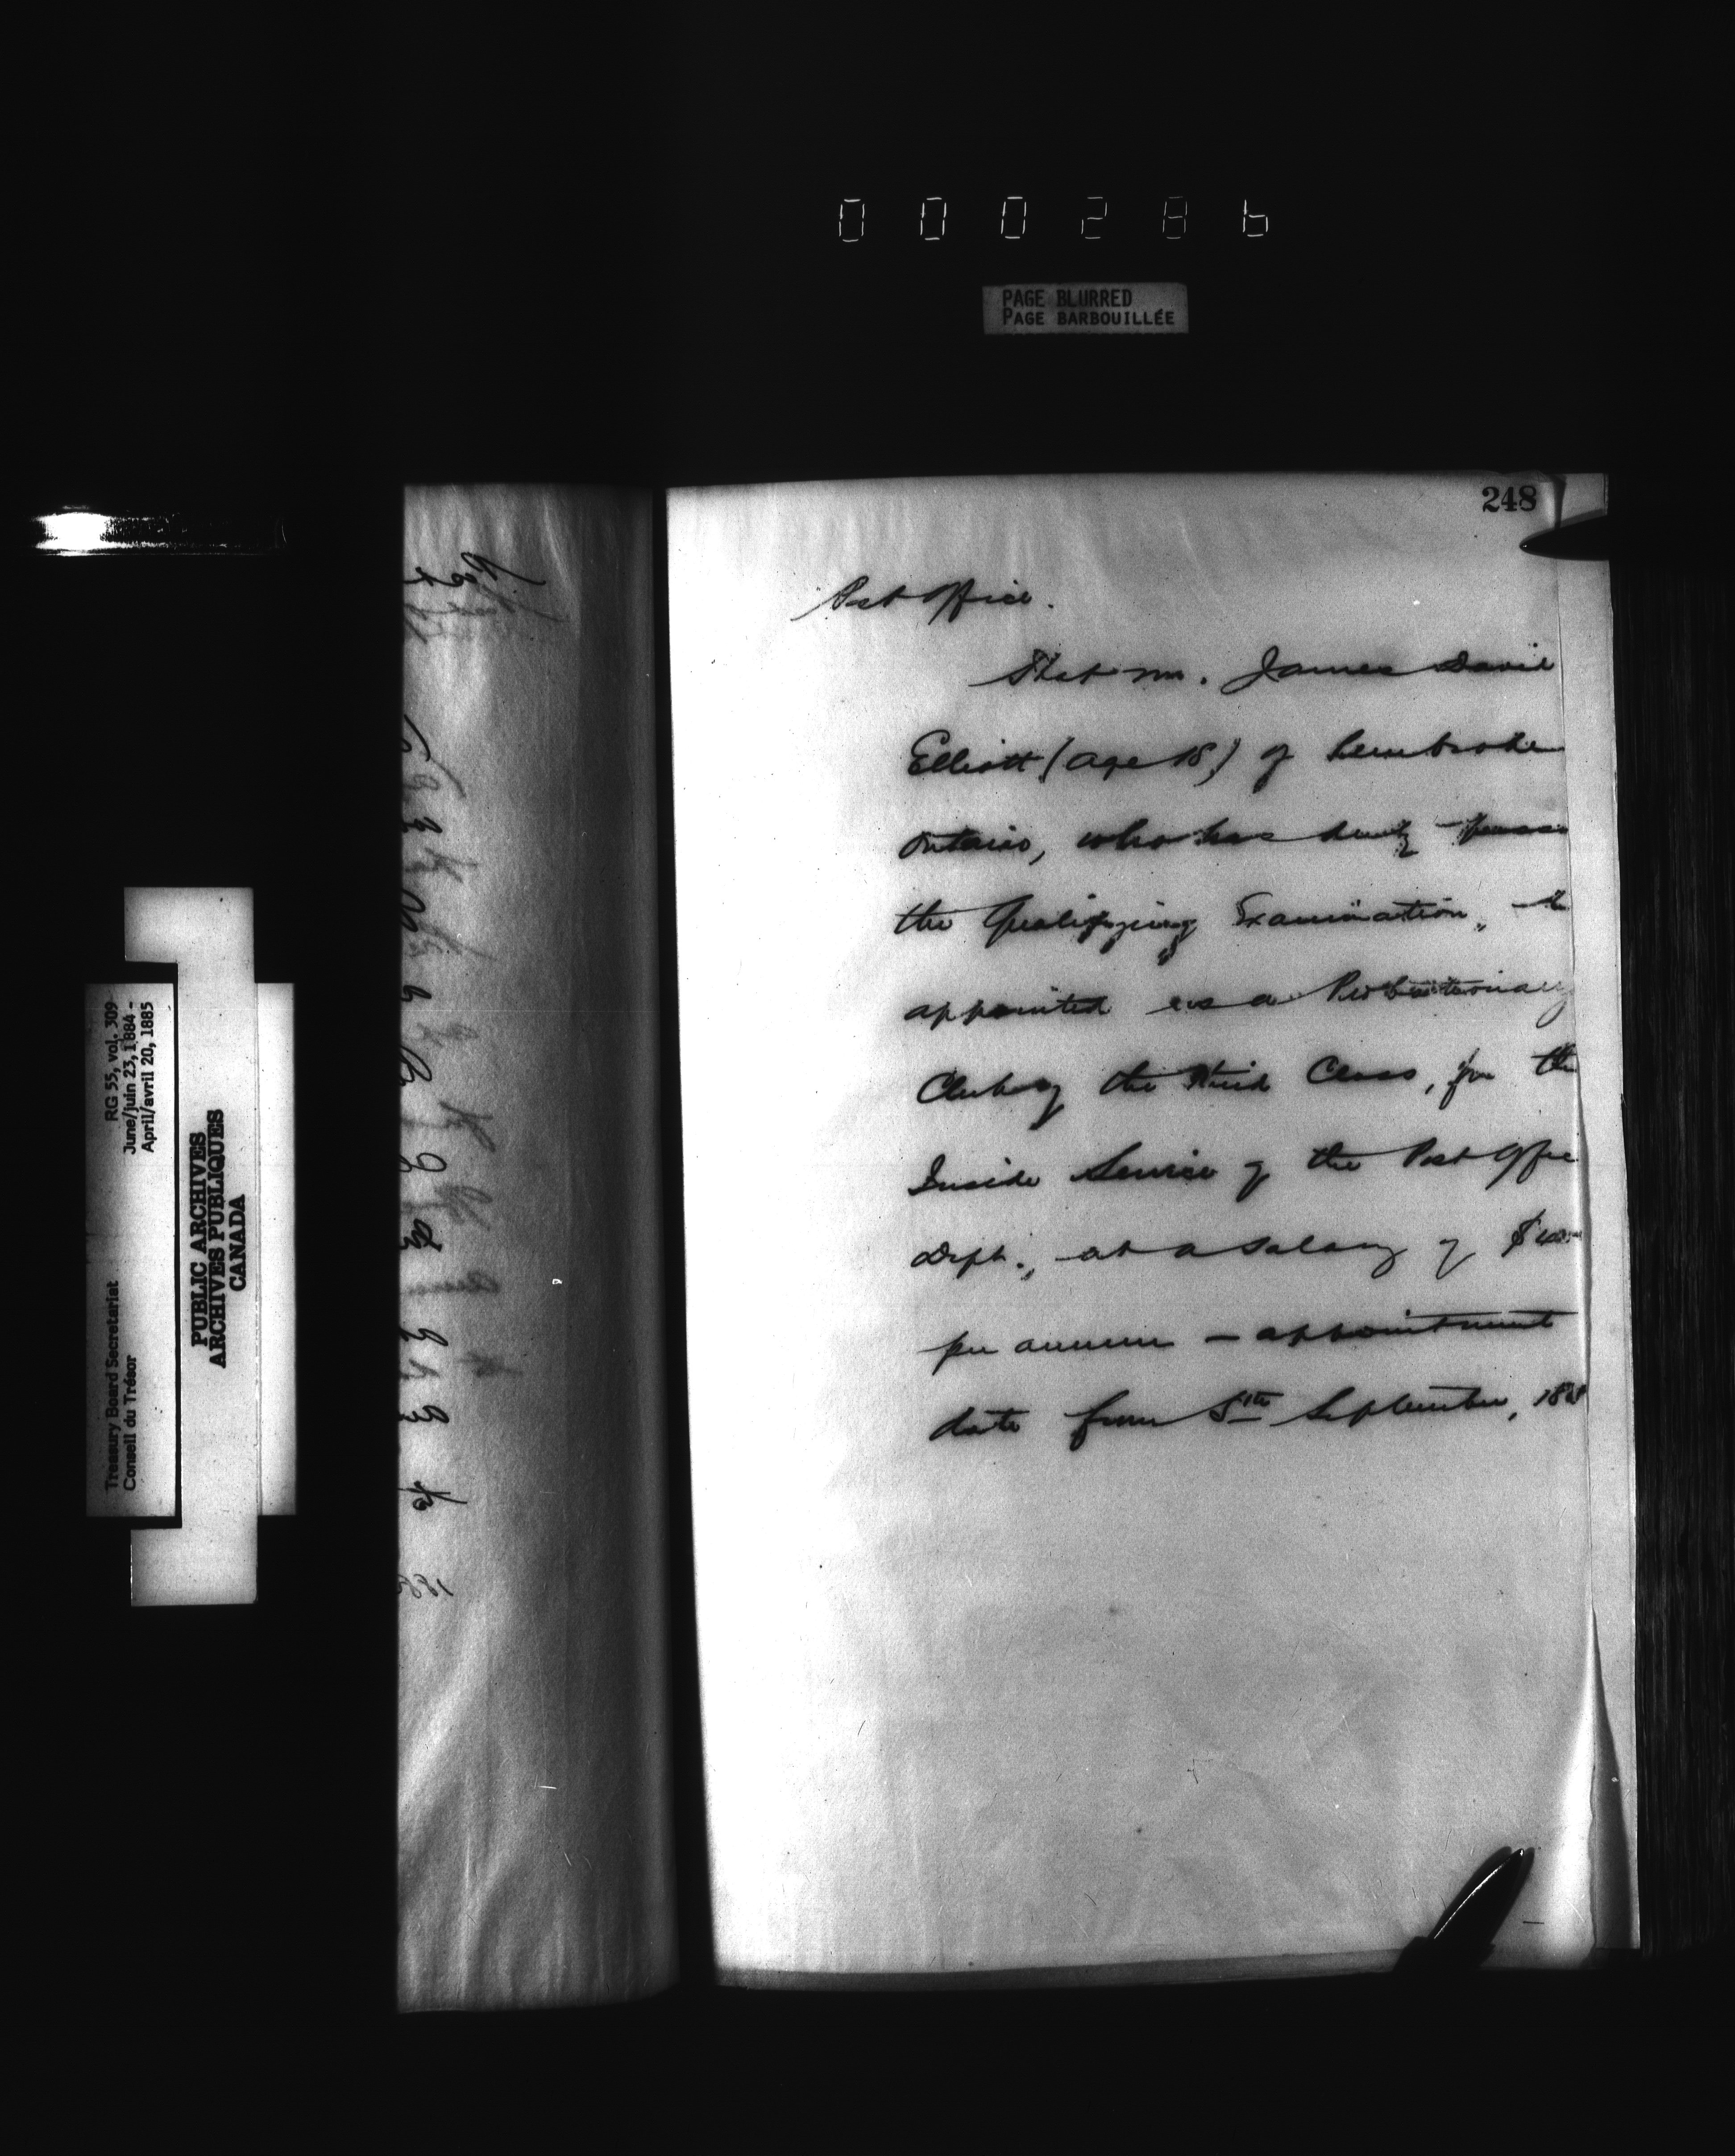 000286
PAGE BLURRED
PAGE BARBOUILLÉE
248
Post Office.
That Mr. James David
Elliott (Age 18) of Pembroke
Ontario, who has duly pass
the Qualifying Examination,
appointed as a Probationary
Clerk of the Third Class, for the
Inside Service of the Post Offic
Dept., at a salary of $400
per annum — appointment
date from 5th September, 188
RG 55, vol. 309
June/juin 23, 1884 -
April/avril 20, 1885
Treasury Board Secretariat
Conseil du Trésor
PUBLIC ARCHIVES
ARCHIVES PUBLIQUES
CANADA